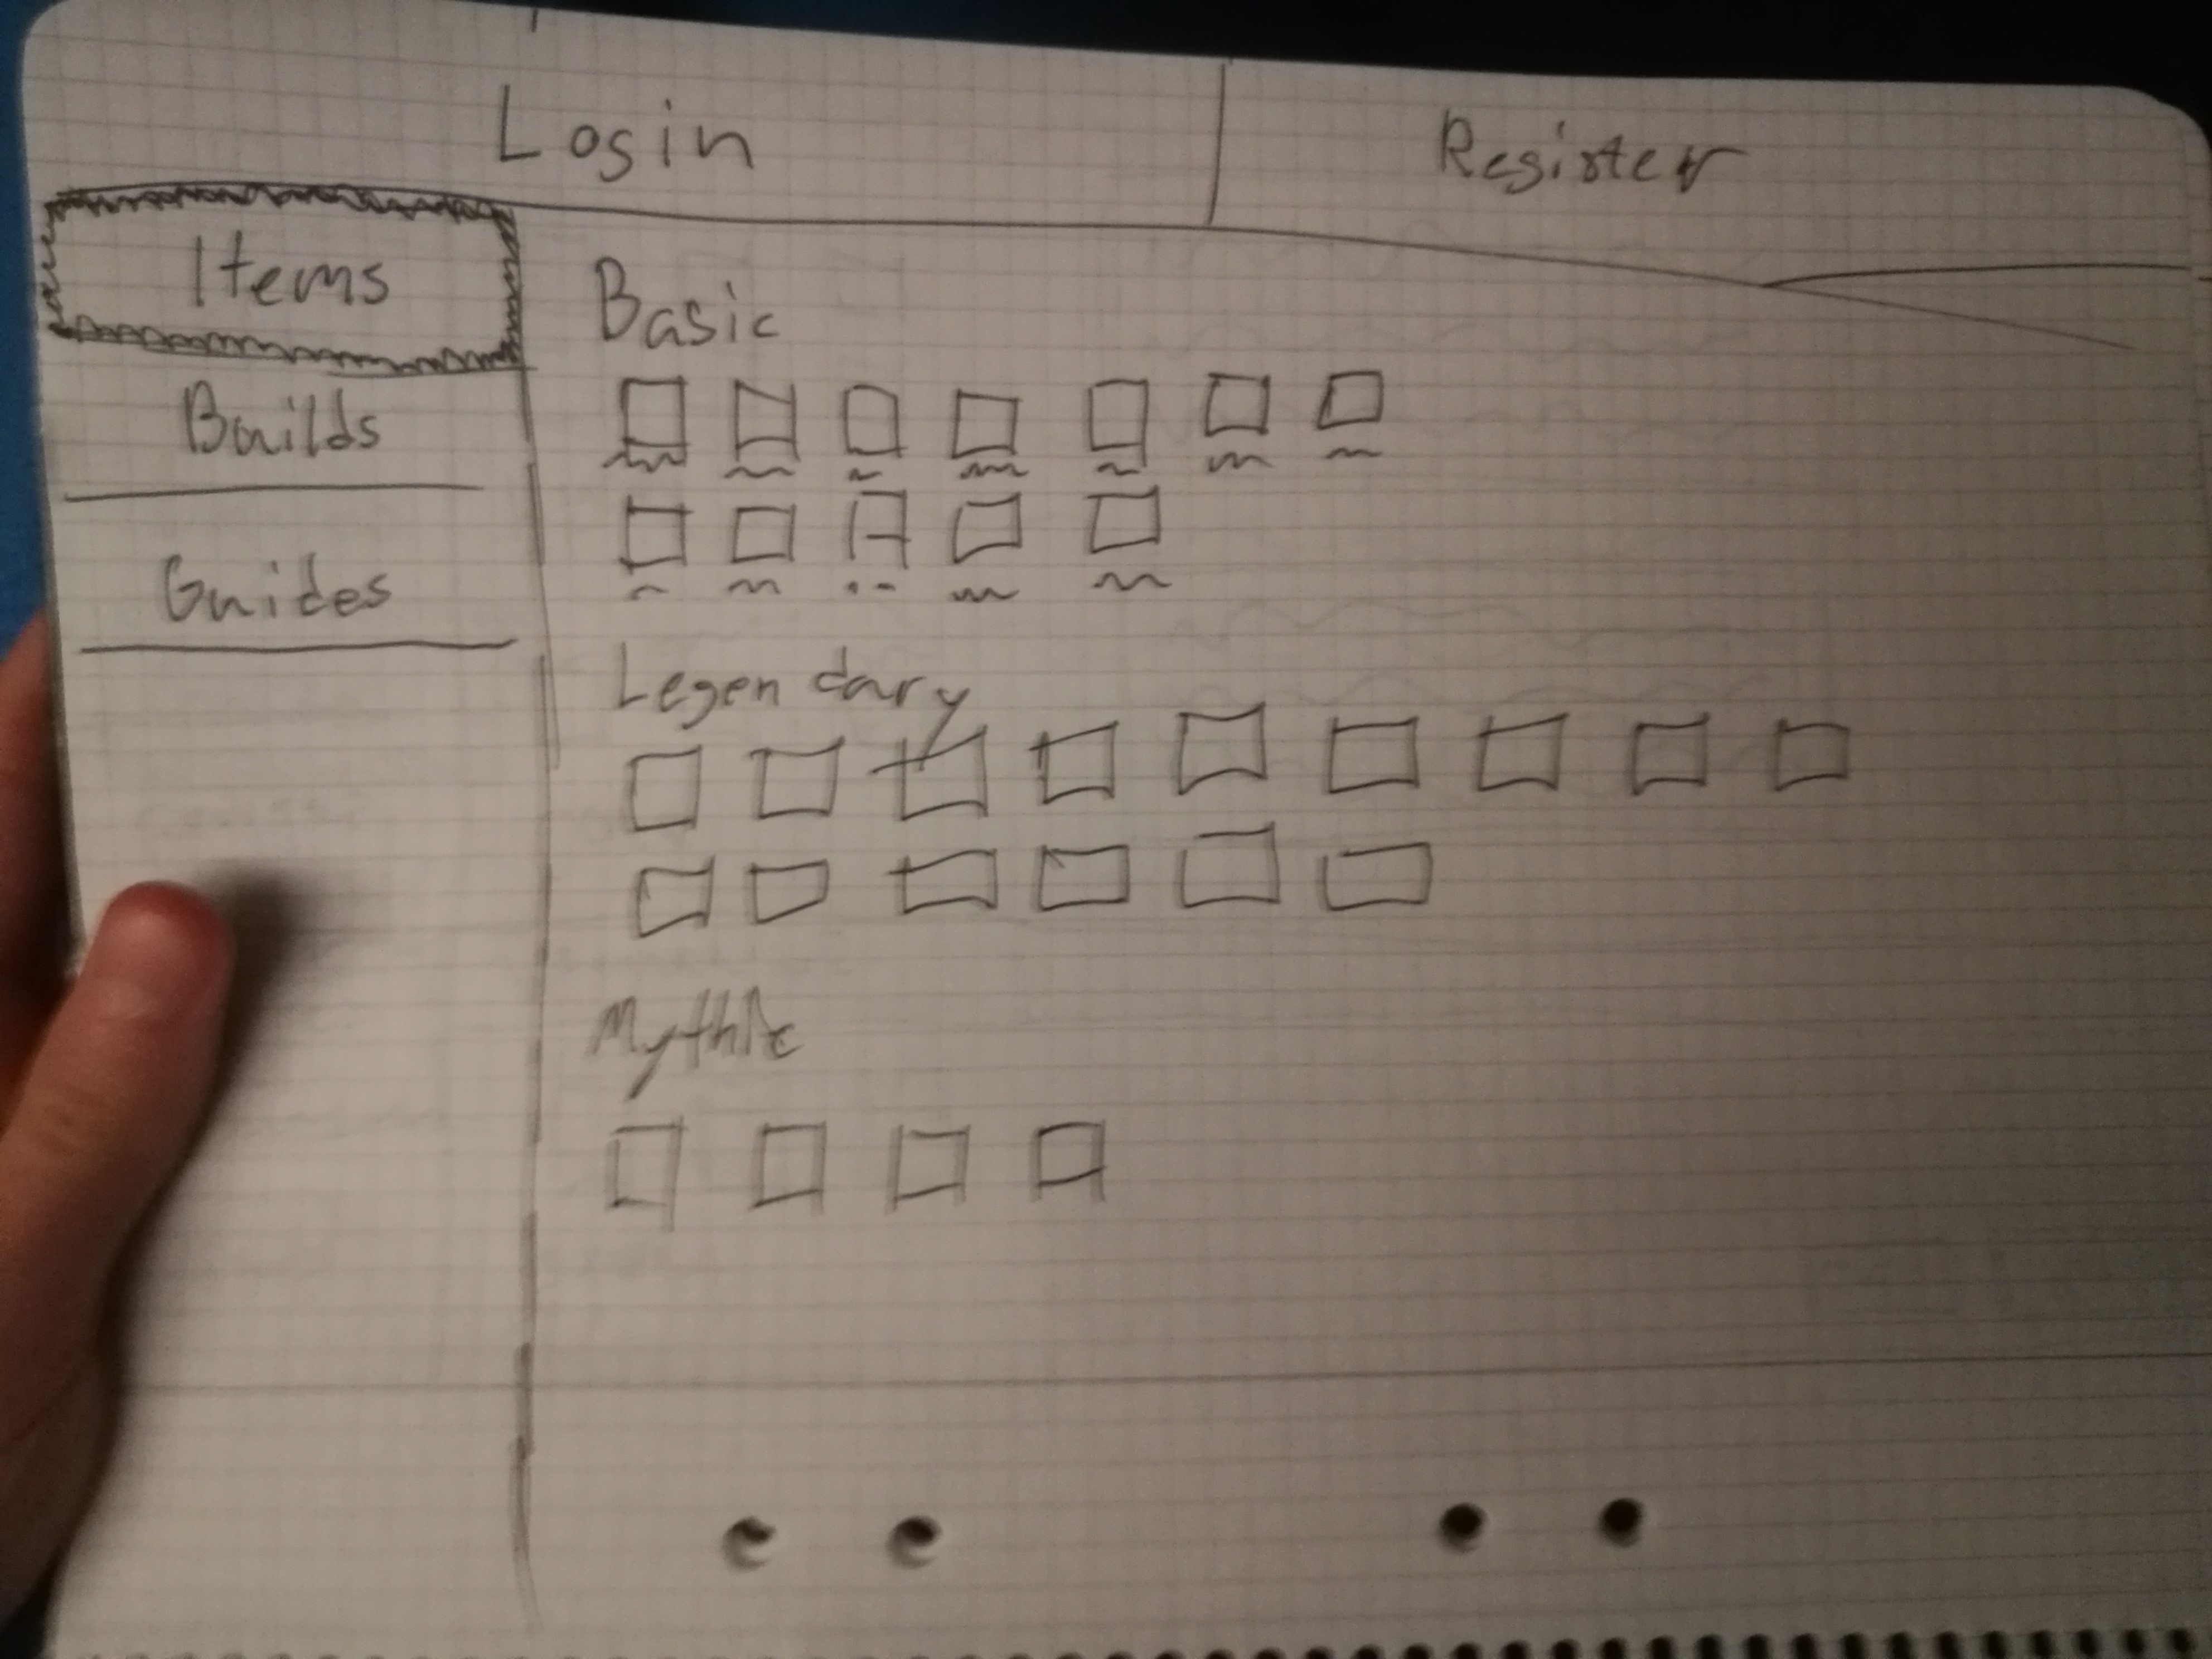 Login Register
Items
Builds
Guides
Basic
Legendary
Mythic